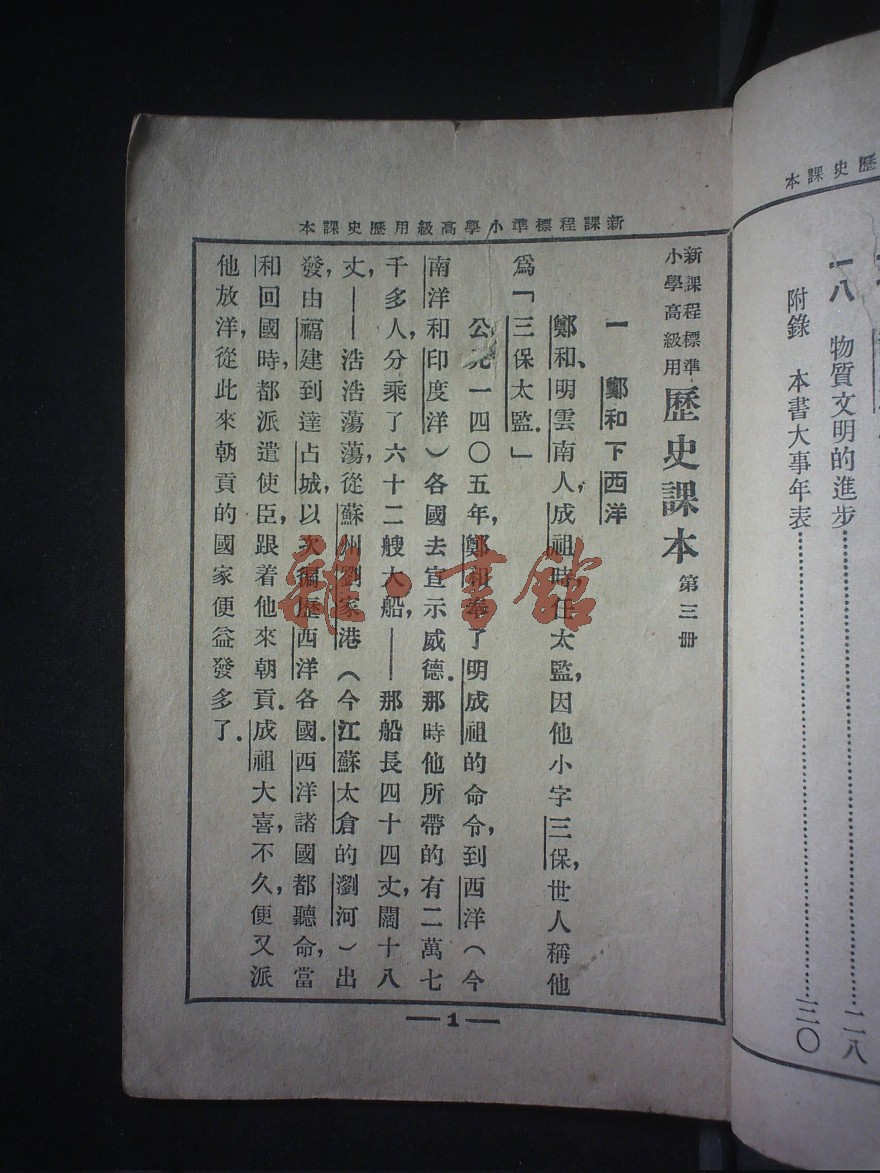 歷史課本
一八　物質文明的進步……二八
附錄　本書大事年表……三〇
新課程標準小學高級用歷史課本
新課程標準
小學高級用
歷史課本 第三冊
一　鄭和下西洋
鄭和、明雲南人，成祖時，任太監，因他小字三保，世人稱他
爲「三保太監．」
公元一四〇五年，鄭和奉了明成祖的命令，到西洋（今
南洋和印度洋）各國去宣示威德．那時他所帶的有二萬七
千多人，分乘了六十二艘大船，——那船長四十四丈，闊十八
丈，——浩浩蕩蕩，從蘇州劉家港（今江蘇太倉的瀏河）出
發，由福建到達占城，以次徧歷西洋各國．西洋諸國都聽命，當
和回國時，都派遣使臣，跟着他來朝貢．成祖大喜，不久，便又派
他放洋，從此來朝貢的國家便益發多了．
—1—
雜·書館